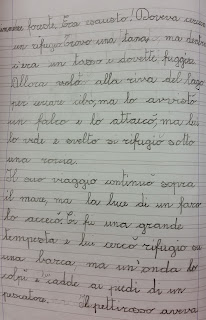 foreste. Era esausto! Doveva cercare
un rifugio. Trovò una tana, ma dentro
c'era un tasso e dovette fuggire.
Allora volò alla riva del lago
per cercare cibo, ma lo avvistò
un falco e lo attaccò, ma lui
lo vide e svelto si rifugiò sotto
una roccia.
Il suo viaggio continuò sopra
il mare, ma la luce di un faro
lo accecò. Ci fu una grande
tempesta e lui cercò rifugio su
una barca, ma un'onda lo
colpì e cadde ai piedi di un
pescatore. Il pettirosso aveva